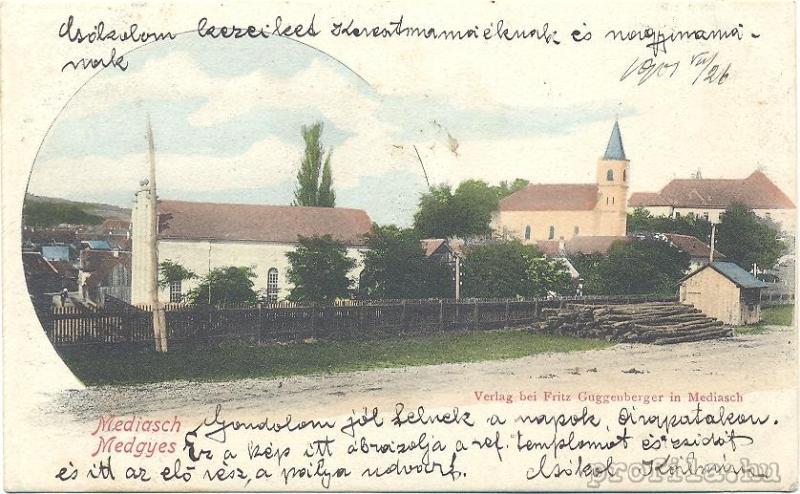 Csókolom kezeiket Keresztmamáéknak és nagymamá-
nak
1901 VII/26
Verlag bei Fritz Guggenberger in Mediasch
Mediasch
Medgyes
Gondolom jól telnek a napok, Oirapatakon.
Ez a kép itt ábrázolja a ref. templomot és zsidót
és itt az elő rész, a pálya udvart.
Csókol Kálmán
profila.hu